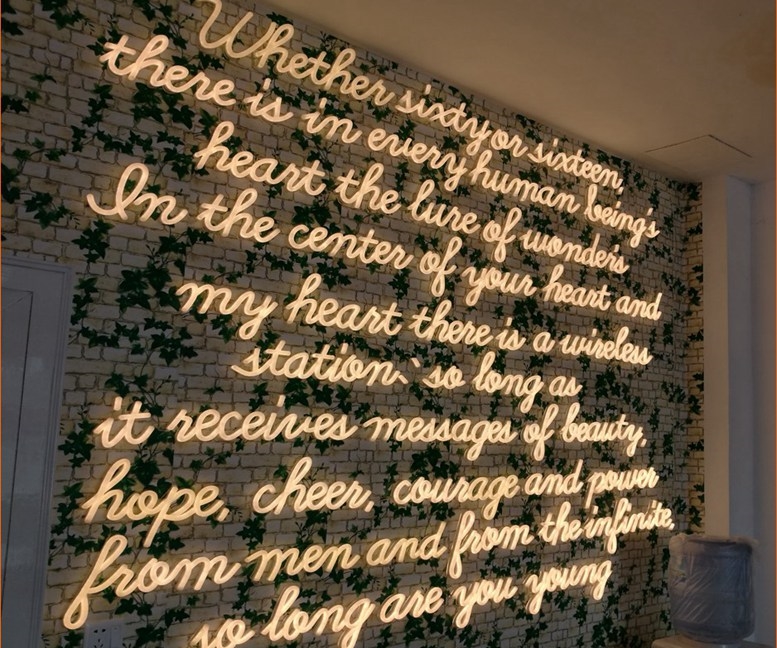 Whether sixty or sixteen,
there is in every human being's
heart the lure of wonders
In the center of your heart and
my heart there is a wireless
station、so long as
it receives messages of beauty,
hope, cheer, courage and power
from men and from the infinite,
so long are you young